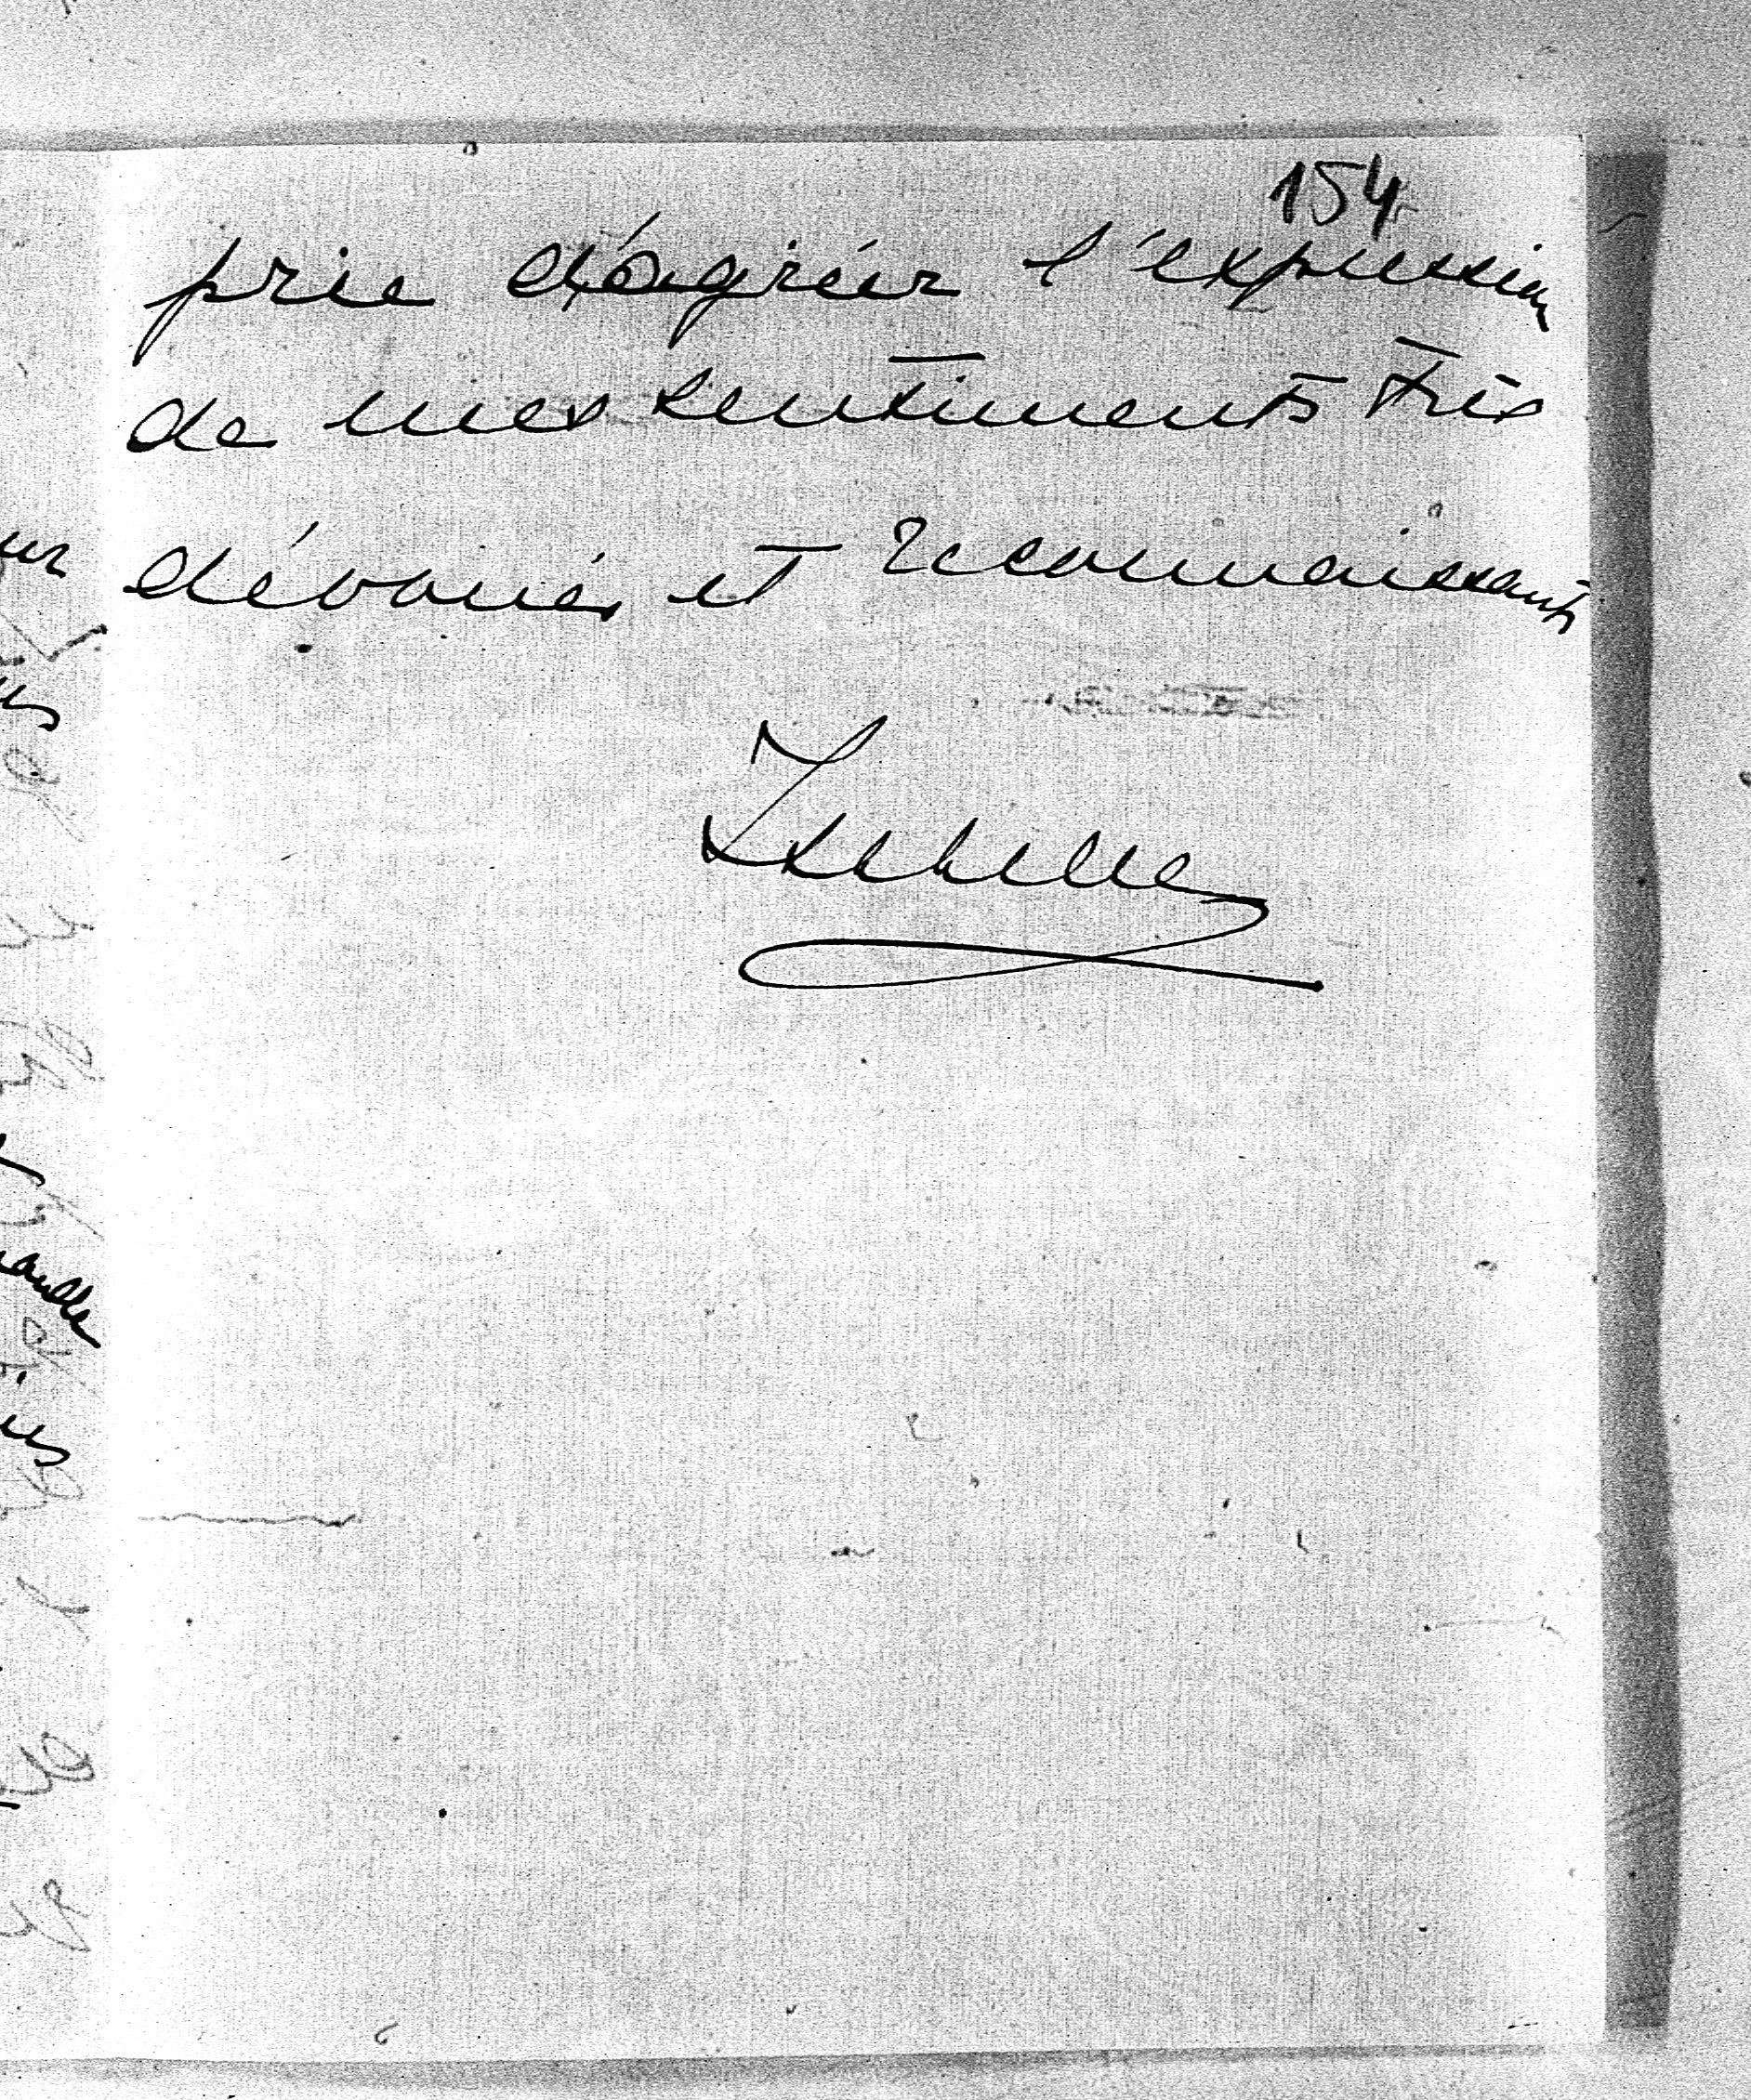 154
prie d'agréer l'expression
de mes sentiments très
dévoués et reconnaissants